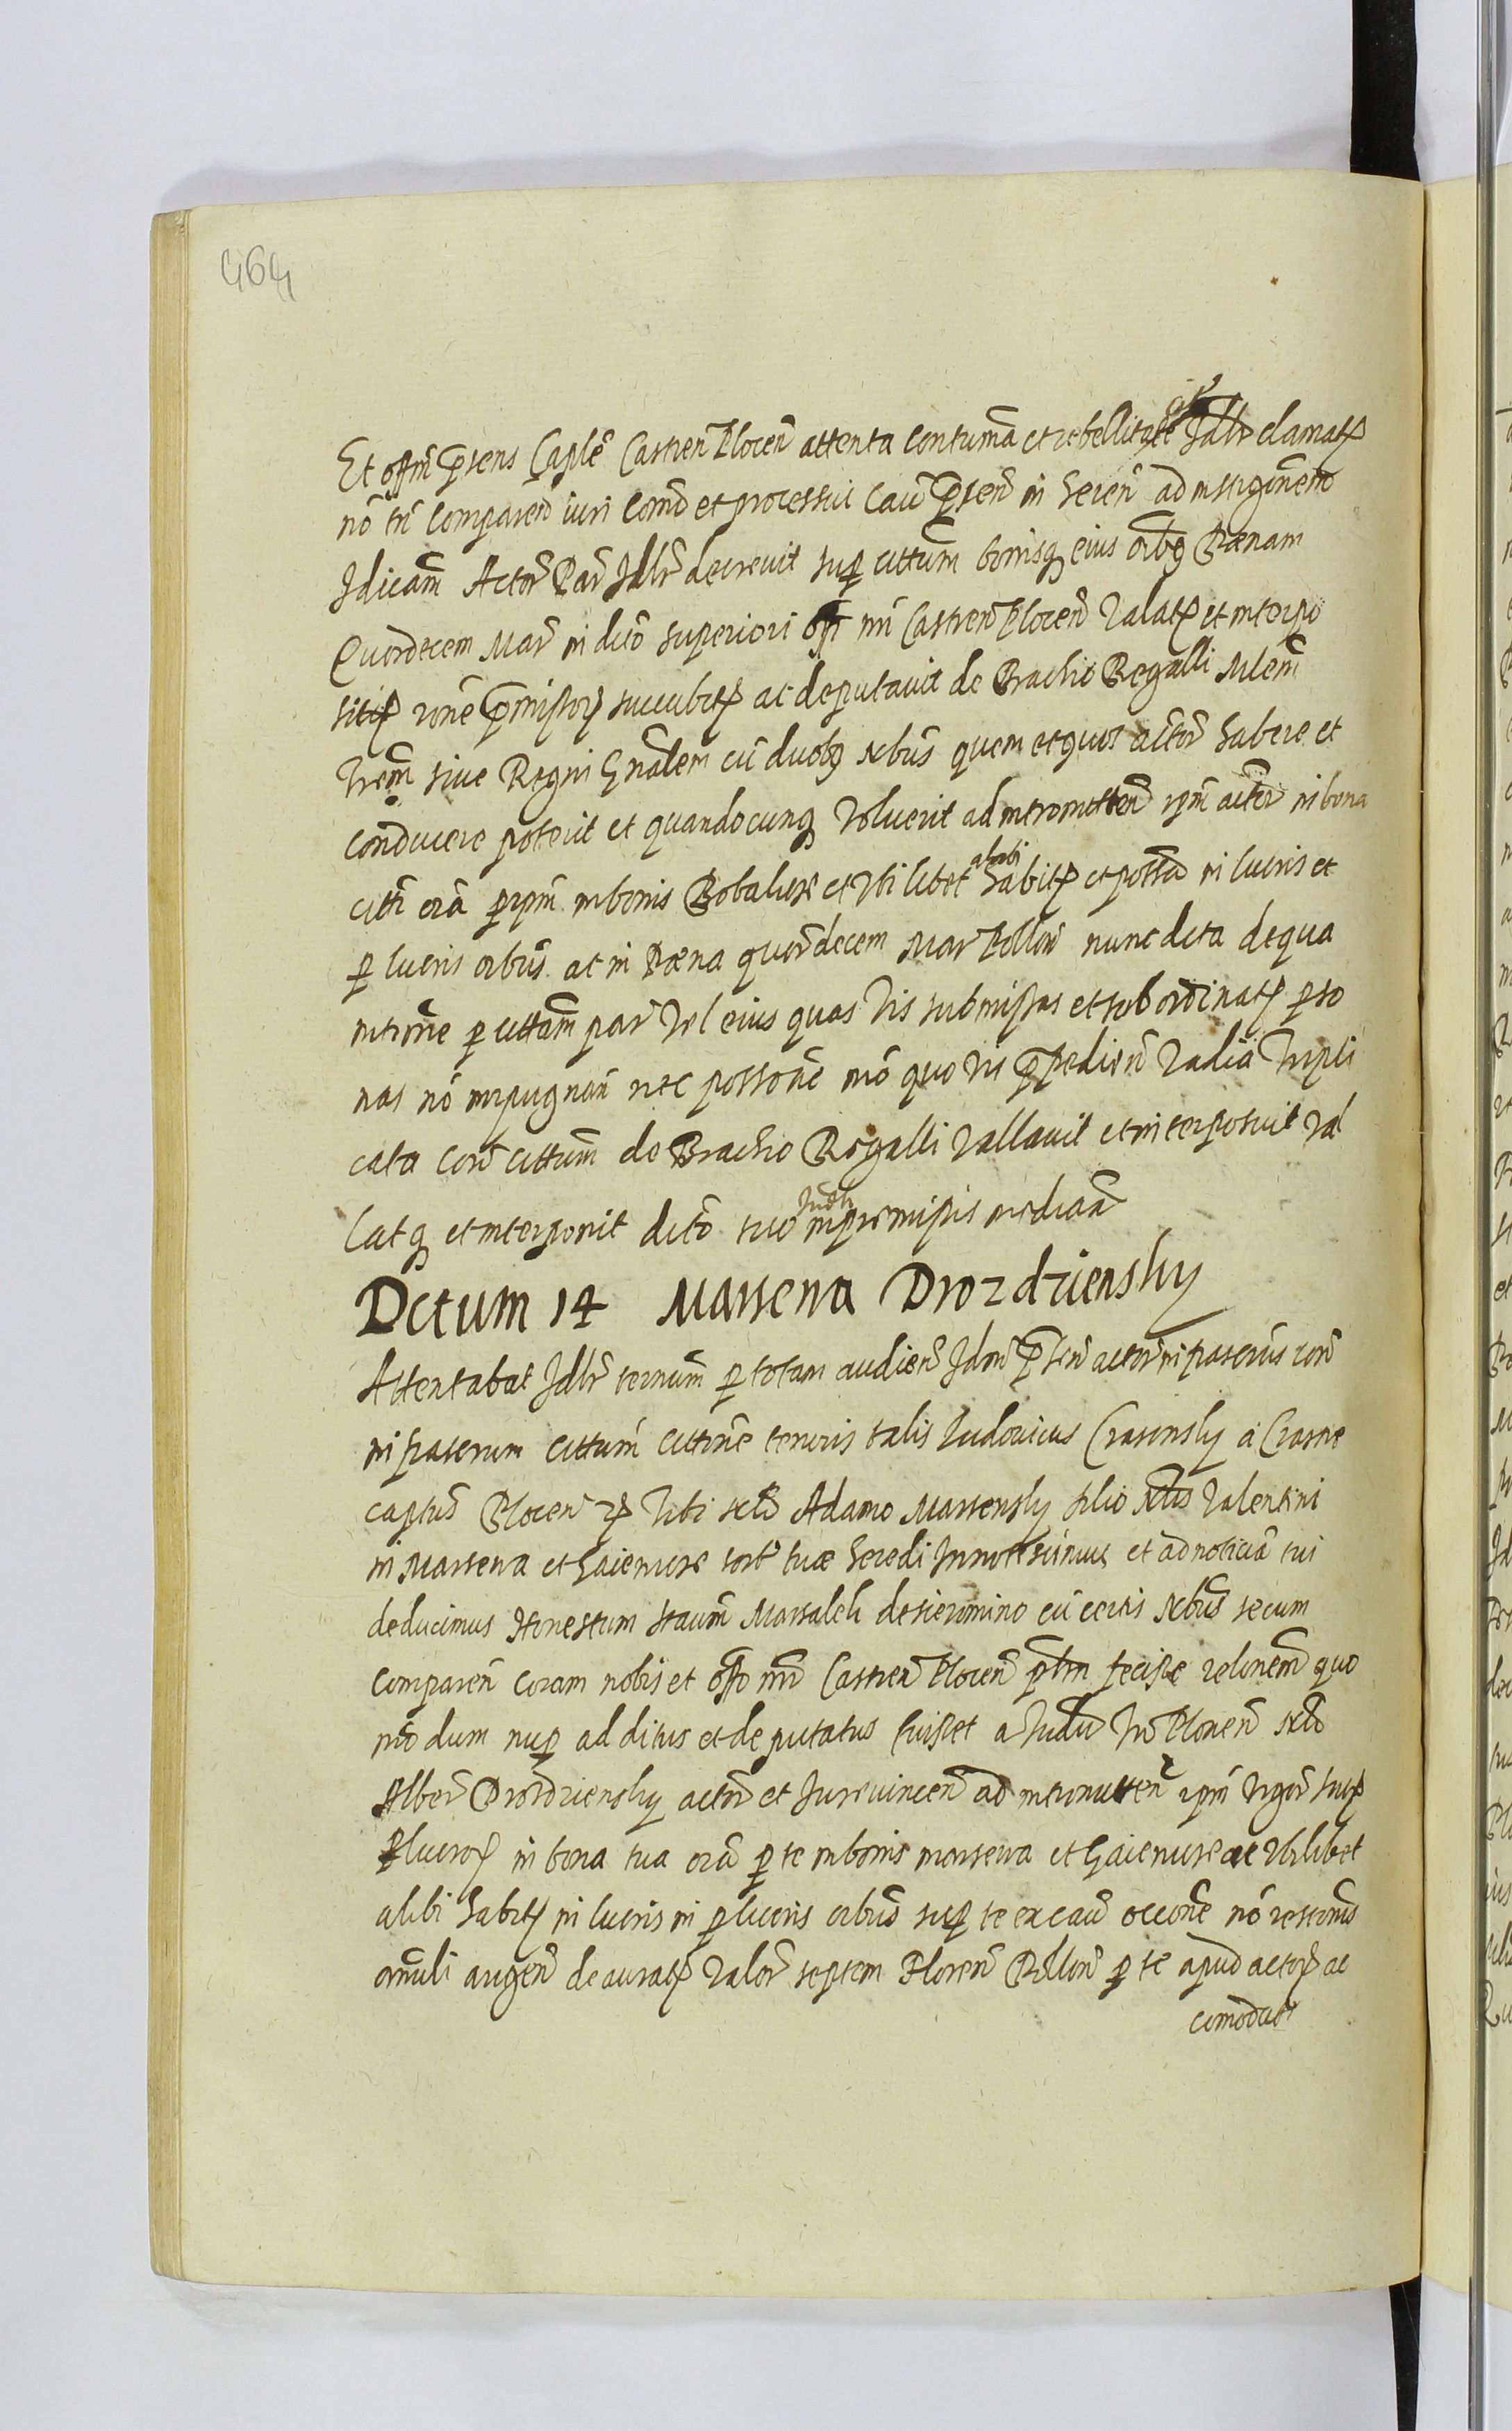 464
Et offm p̄sens Caplē Castren̄ Plocen̄ attenta contuma et rebellitate Idlr clamatꝝ
nō tn̄ comparen̄ iuri Comō et processui Cau p̄sen̄ in heren̄ ad instigōnem̄
Idicam̄ Actor̄ Par Idlr̄ decrevit sup cittum̄ bonisqꝫ eius oībꝫ Pænam
Quordecem Mar̄ in dictō superiori offī nrī Castren̄ Plocen̄ Valatꝝ et interpo
sitꝝ rōne p̄missorꝝ succubitꝝ ac deputavit de Brachio Regalli Mlem̄
Trem̄ sive Regni Gn̄alem cū duobꝫ nbūs quem et quos actor̄ habere et
conducere poterit et quandocunqꝫ Voluerit ad intromitten̄ ipm̄ actor̄ in bona
citti oīa p ipm̄ in bonis Bobalicze et Ubilibet alibi habitꝝ et possā in lucris et
p lucris oībūs ac in Pæna quordecem Mar Pollon̄ nunc dicta de qua
intrōne p cittam̄ par Vel eius quas Vis submissas et subordinatꝝ perso
nas nō impugnān nec possōne mō quo Vis p̄pedien̄ Vadia tripli
cata con̄ cittum̄ de Brachio Regalli Vallavit et interposuit Val
latqꝫ et interponit dictō suo Iudli in premissis median̄
Dctum 14 Marsewa Drozdziensky
Attentabat Idlr̄ ternum̄ p totam audien̄ Idon̄ p̄sen̄ actor̄ in paterūs con̄
in paterum cittum̄ cittōne tenoris talis Ludovicus Crasinsky a Crasne
captus Plocen̄ ꝛc Tibi nbli Adamo Marsensky filio nblis Valentini
in Marsewa et Gaiewicze sort̄ tuæ heredi Innotescimus et ad noticiā tui
deducimus Honestum Stanm̄ Marsalek de Sieromino cū certis nbūs secum
comparen̄ coram nobis et offo nrō Castren̄ Plocen̄ pblm fecisse relōnem̄ quo
mō dum nup additus et deputatus fuisset a Iudiō Tro Plonen̄ nbli
Alber̄ Drozdziensky actor̄ et Jurevincen̄ ad intromitten̄ ipm̄ vigor̄ suorꝝ
Plucrorꝝ in bona tua oīa p te in bonis marsewa et Gaiewicze ac Ubilibet
alibi habitꝝ in lucris in p lucris oībūs sup te ex cau occōne nō rescōnis
annuli argen̄ deauratꝝ Valor̄ septem Floren̄ Pollon̄ p te apud actorꝝ ac
comodati